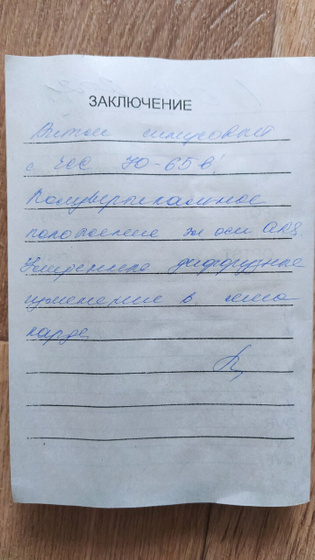 ЗАКЛЮЧЕНИЕ
Ритм синусовый
с ЧСС 70-65 в'
Полувертикальное
положение эл оси
Умеренные диффузные
изменения в мио
карде